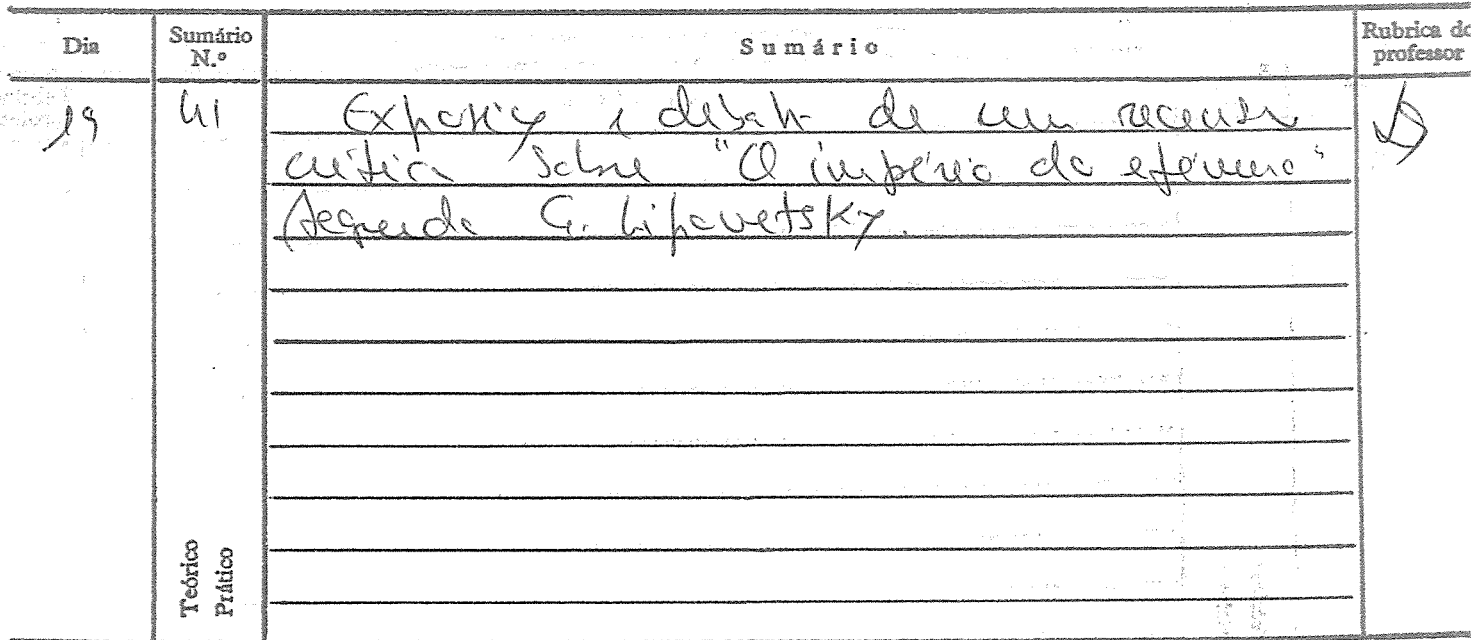 Dia
Sumário N.º
Sumário
Rubrica do professor
19
41
Exposição e debate de um recensão
crítica sobre "O império do efémero"
segundo G. Lipovetsky.
Teórico
Prático